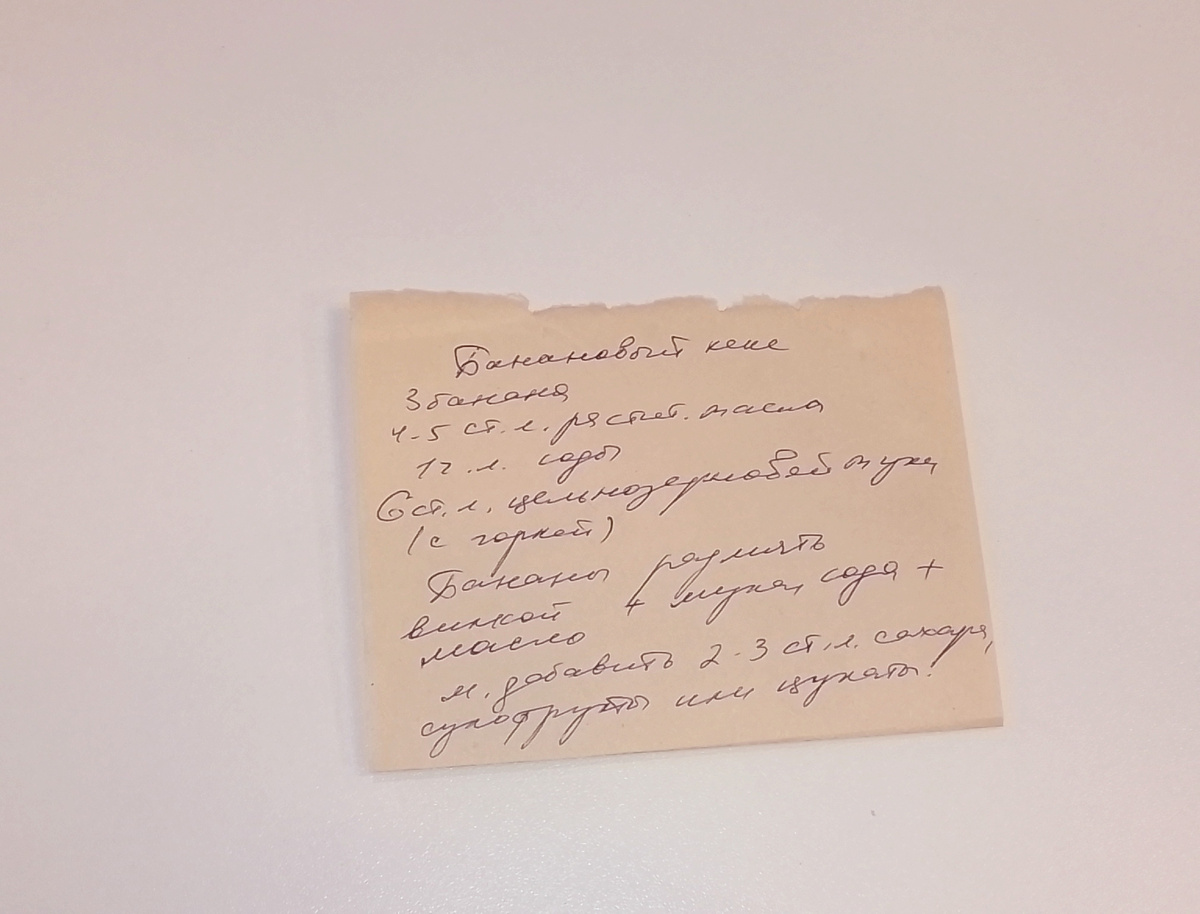 Банановый кекс
3 банана
4-5 ст. л. растит. масла
1 ч. л. соды
6 ст. л. цельнозерновой муки
(с горкой)
Бананы размять
вилкой + мука, сода +
масло
м. добавить 2-3 ст. л. сахара,
сухофрукты или цукаты!